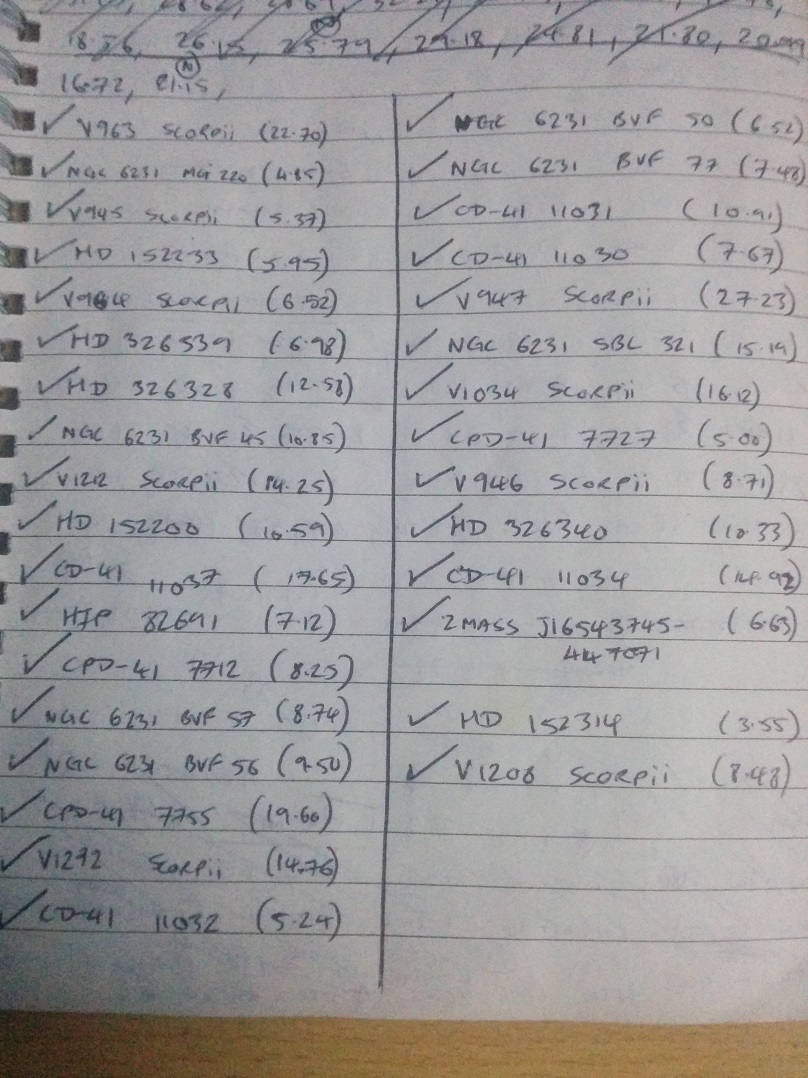 18.56, 26.15, 25.79, 29.18, 24.81, 21.80, 20.99
16.72, 21.15,
N
✓ V963 Scorpii (22.70)
✓ NGC 6231 MGI 220 (4.85)
✓ V945 Scorpii (5.37)
✓ HD 152233 (5.95)
✓ V964 Scorpii (6.52)
✓ HD 326339 (6.98)
✓ HD 326328 (12.58)
✓ NGC 6231 BVF 45 (10.85)
✓ V1212 Scorpii (14.25)
✓ HD 152200 (10.59)
✓ CD-41 11037 (17.65)
✓ HIP 82691 (7.12)
✓ CPD-41 7712 (8.25)
✓ NGC 6231 BVF 57 (8.74)
✓ NGC 6231 BVF 56 (9.50)
✓ CPD-41 7755 (19.60)
✓ V1292 Scorpii (14.76)
✓ CD-41 11032 (5.24)
✓ NGC 6231 BVF 50 (6.52)
✓ NGC 6231 BVF 77 (7.48)
✓ CD-41 11031 (10.91)
✓ CD-41 11030 (7.67)
✓ V947 Scorpii (27.23)
✓ NGC 6231 SBL 321 (15.19)
✓ V1034 Scorpii (16.12)
✓ CPD-41 7727 (5.00)
✓ V946 Scorpii (8.71)
✓ HD 326340 (10.33)
✓ CD-41 11034 (14.92)
✓ 2MASS J16543745- (6.63)
4147071
✓ HD 152314 (3.55)
✓ V1208 Scorpii (8.48)